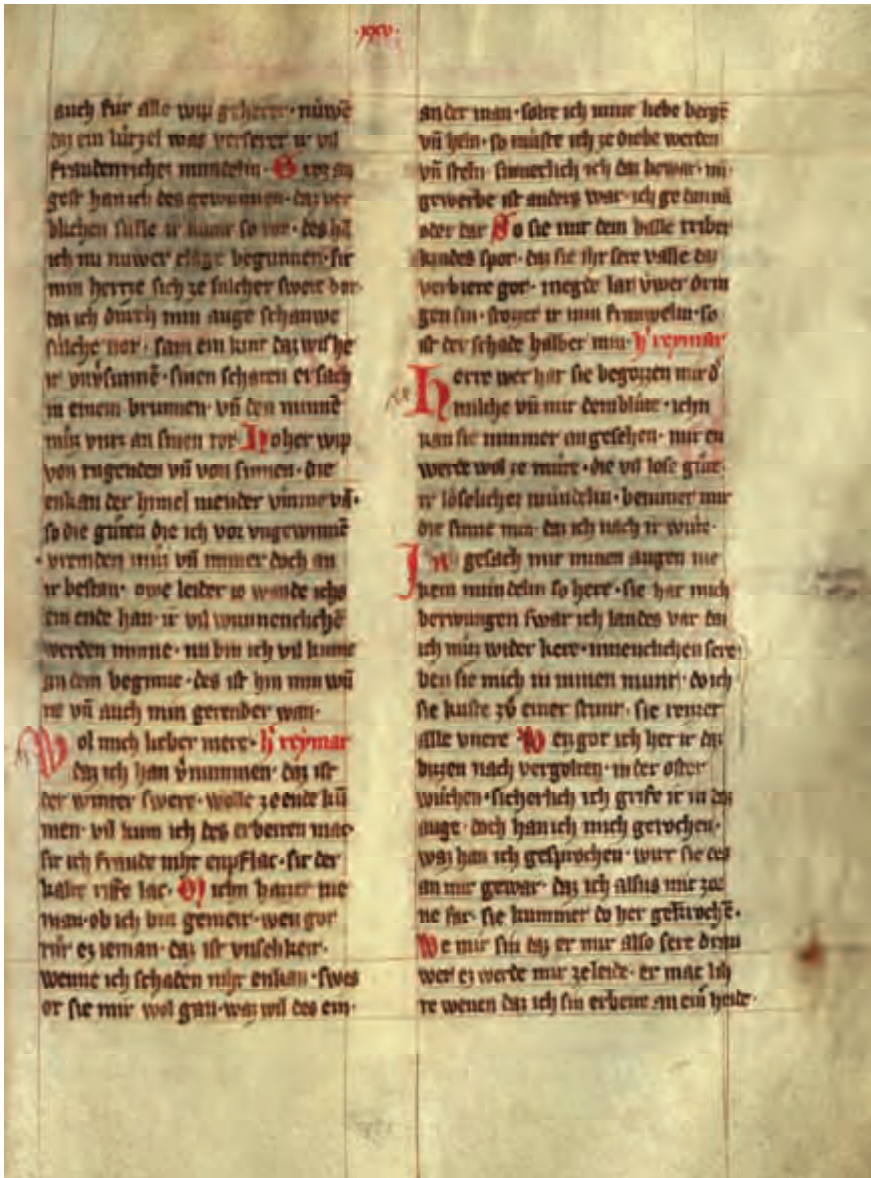 ·xxv·
auch fur alle wip geherer· nuwē
daz ein luzzel was verserer ir vil
fraudenricher mundelin· Groz an
gest han ich des gewunnen· daz ver
blichen sulle ir munt so ror· des hā
ich nu nuwer clage begunnen· sir
min herrze sich ze sulcher swere bor·
daz ich durch min auge schauwe
sulche nor· sam ein kint daz wishe
ir vnv̄sunnē· sinen schaten ersach
in einem brunnen· vn̄ den minnē
müz vntz an sinen tor· Hoher wip
von tugenden vn̄ von sinnen· die
enkan der himel niender vmmevā·
so die guten die ich vor vngewinnē
·vremden müz vn̄ immer doch an
ir bestan· owe leider io wande ichs
ein ende han· ir vil wunnenclichē
werden minne· nu bin ich vil kume
an dem beginne· des ist hin min wū
ne vn̄ auch min gerender wan·
Wol mich lieber mere· h̄ reymar
daz ich han v̄nummen· daz ist
der winter swere· wolle ze ende kū
men· vil kum ich des erbeiten mac
sir ich fraude niht enpflac· sir der
kalte riffe lac· Mich hazzet nie
man· ob ich bin gemeit· wen got
tür ez ieman· daz ist vnselikeit·
wenne ich schaden niht enkan· swes
or sie mir wol gan· waz wil des ein·
ander man· solte ich mine liebe bergē
vn̄ heln· so müste ich ze diebe werden
vn̄ steln· sinneclich ich daz bewar· mī
gewerbe ist anders war· ich ge dannā
oder dar So sie mit dem balle tribet
kindes spor· daz sie iht sere valle daz
verbiere got· megde lat vwer drin
gen sin· stozet ir min frauwelin· so
ist der schade halber min· h̄ reymar
Herre wer hat sie begozzen mit d̓
milche vn̄ mit dem blüte· ichn
kan sie nimmer an gesehen· mir en
werde wol ze müte· die vil lose güte·
ir löselichez mündelin· benimmet mir
die sinne min· daz ich nach ir wüte·
Ih gesach mit minen augen nie
kein mündelin so here· sie hat mich
betwungen swar ich landes var daz
ich müz wider kere· minneclichen sere
ben sie mich in minen munt· do ich
sie kuste zů einer stunt· sie reitzet
alle vnere Wen got ich het ir daz
bizen nach vergolten· in der oster
wüchen· sicherlich ich grife ir in daz
auge· doch han ich mich gerochen·
waz han ich gesprochen· wirt sie des
an mir gewar· daz ich alsus mit zor
ne far· sie kummet do her gekrochē·
We mir sin daz er mir also sere drau
wet ez werde mir ze leide· er mac lih
te wenen daz ich sin erbeite an ein̄ heide·